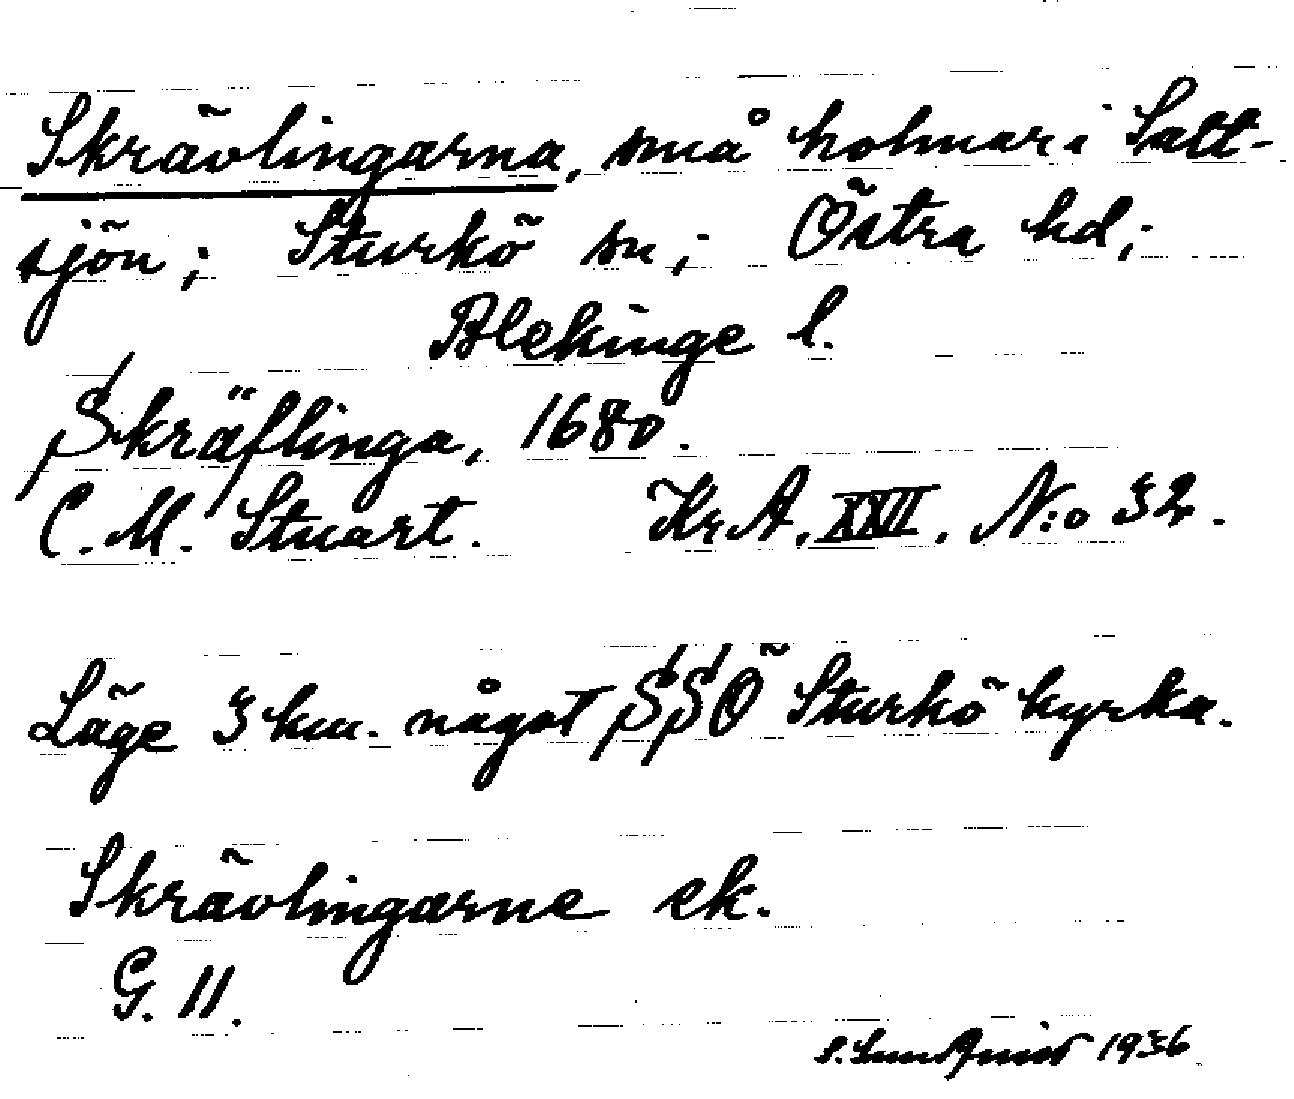 Skrävlingarna, små holmar i Salt-
sjön; Sturkö sn; Östra hd;
Blekinge l.
Skräflinga, 1680.
C. M. Stuart. Kr. A. XXII. N:o 32.
Läge 3 km. något SSÖ Sturkö kyrka.
Skrävlingarne ek.
G. 11.
1936